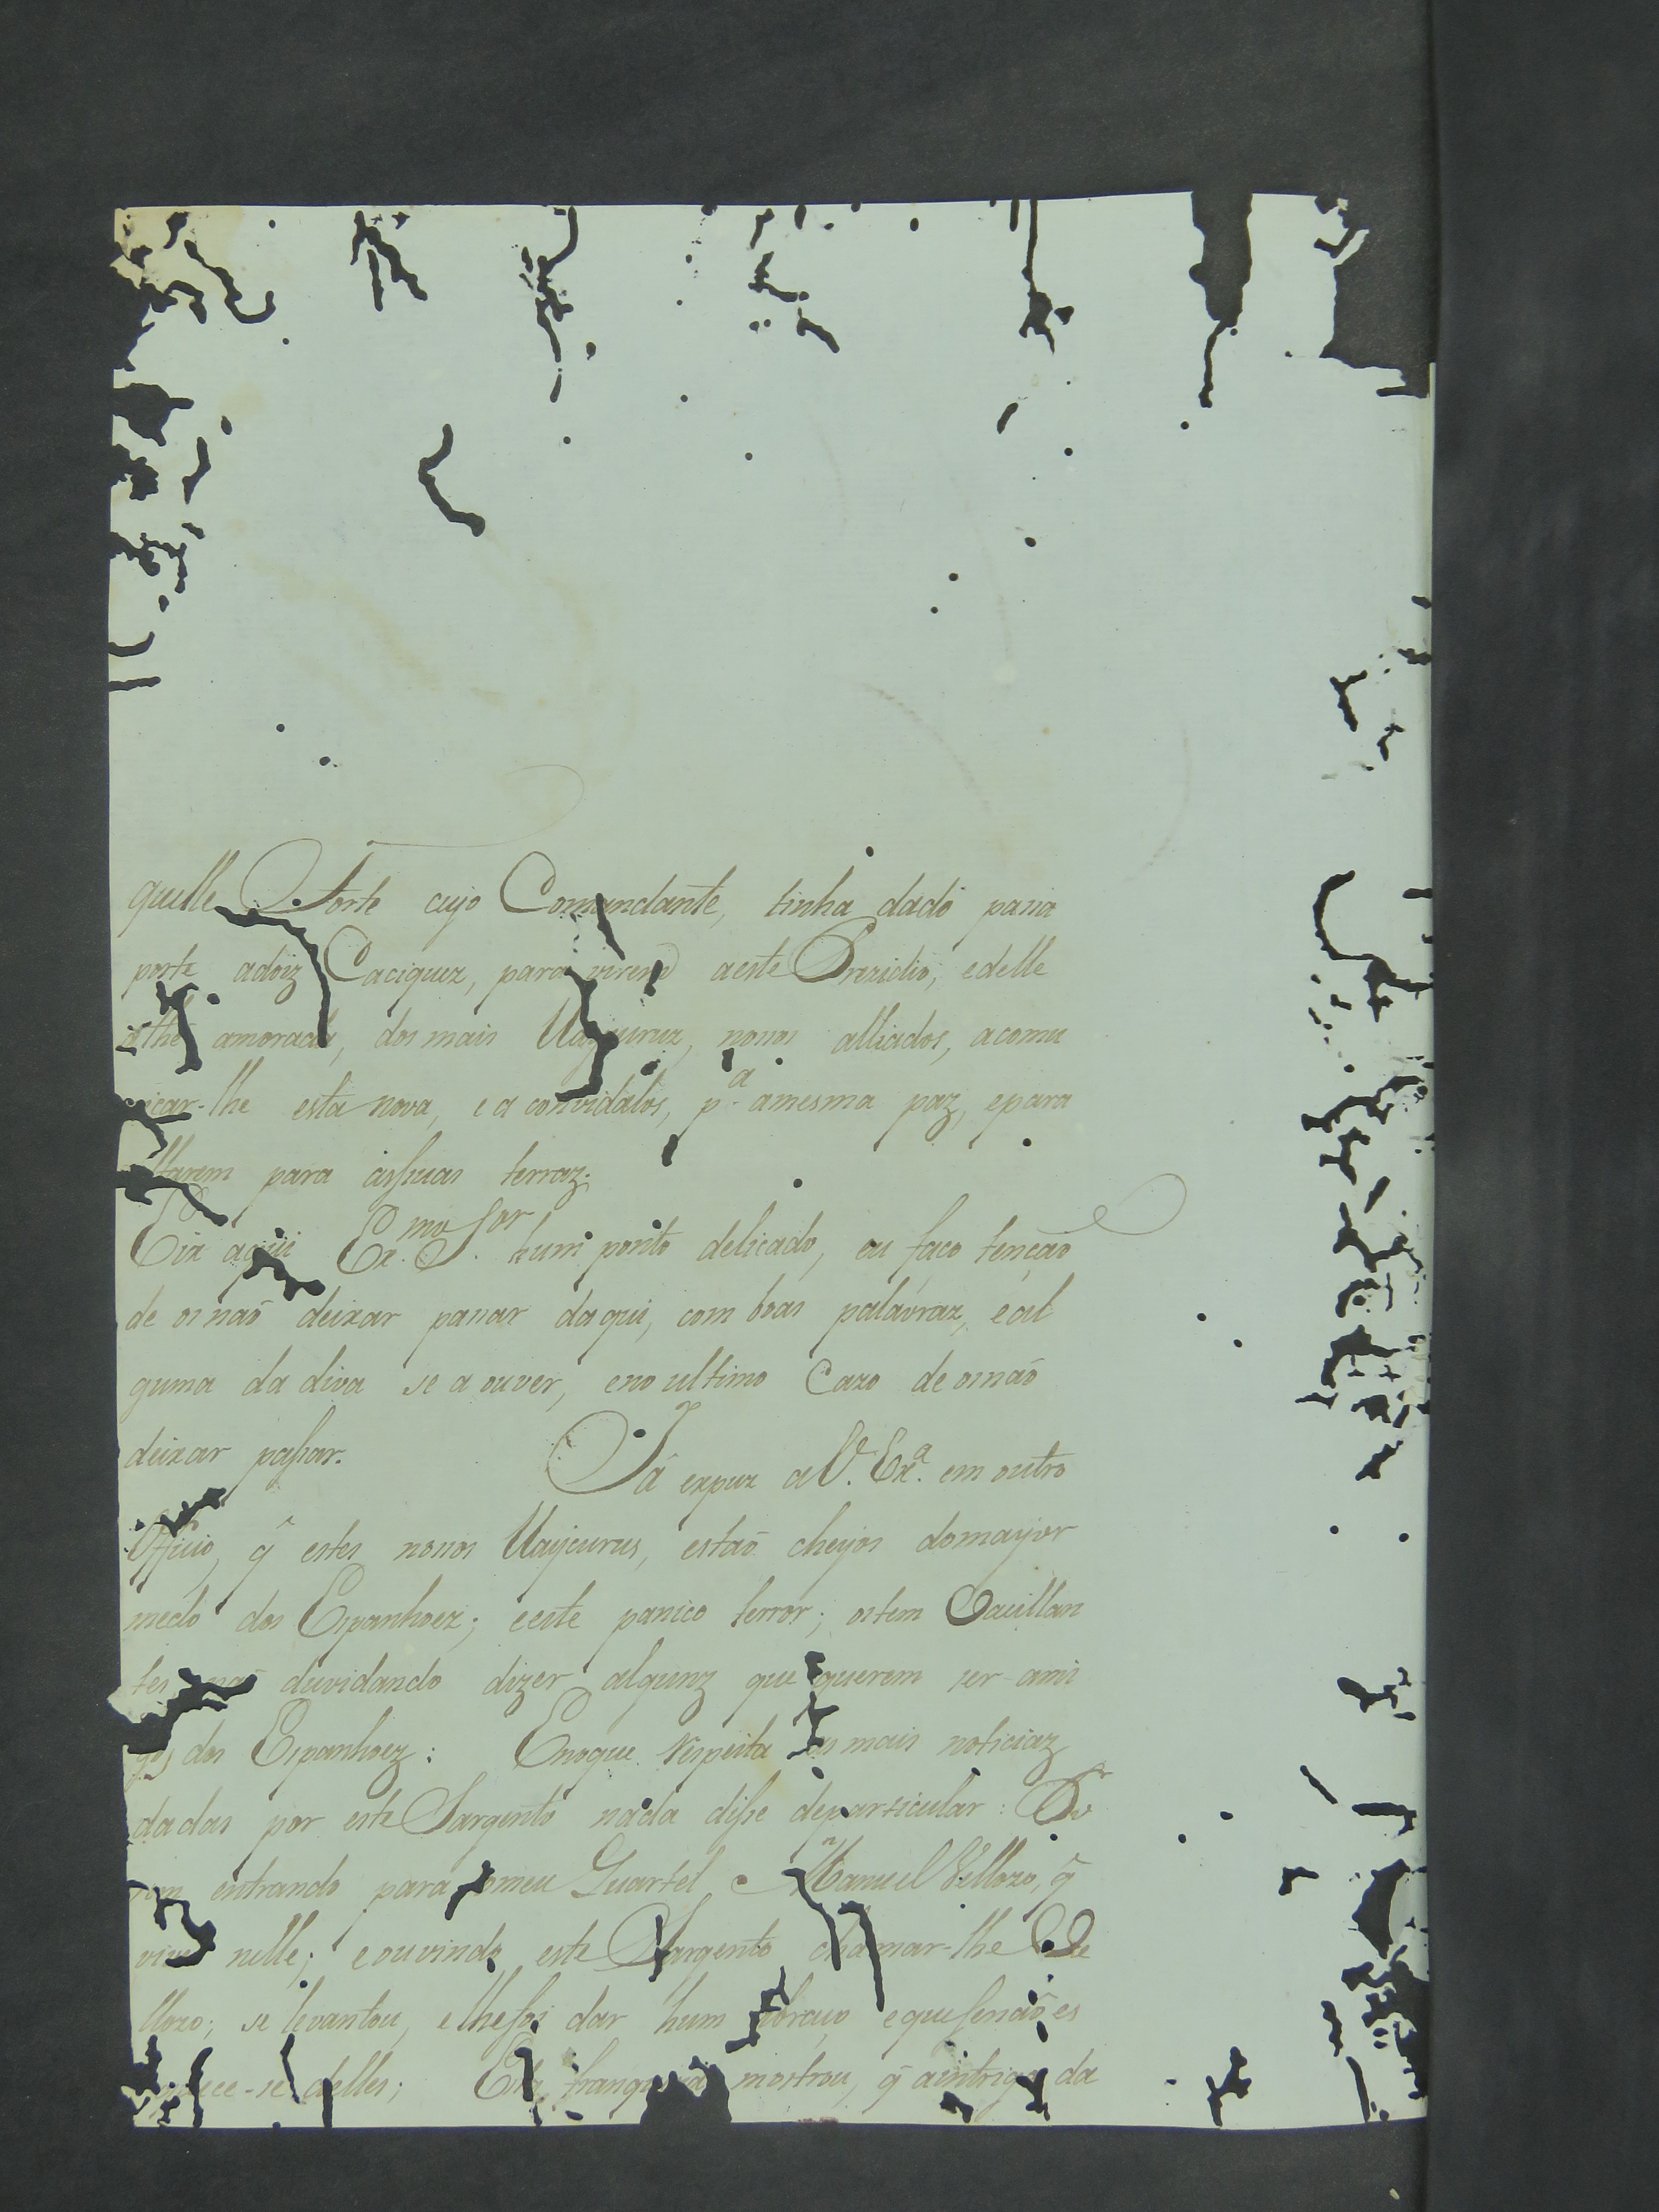 quelle Forte cujo Comandante, tinha dado passa
porte adoiz Caciquez, para virem aeste Prezidio, edelle
athe amorada, dos mais Uaycuruz, nossos alliados, acomu
nicar-lhe esta nova, e a convidalos, p.ª amesma paz, epara
voltarem para assuas terraz.
Eiz aqui Ex.mo S.or hum ponto delicado, eu faco tenção
de os naõ deixar passar daqui, com boas palavraz, e al
guma dadiva se a ouver, eno ultimo Cazo de osnaõ
deixar passar. Já expuz a V. Ex.ª em outro
Officio, q̃ estes nossos Uaycurus, estaõ cheyos domayor
medo dos Espanhoez; eeste panico terror; ostem Vacillan
tes naõ duvidando dizer algunz que querem ser ami
gos dos Espanhoez: Enoque Respeita as mais noticiaz
dadas por este Sargento nada disse departicular: Po
rem entrando para omeu Quartel Manuel Vellozo, q̃
vive nelle; eouvindo este Sargento chamar-lhe Ve
llozo; se levantou, elhefoi dar hum abraço, equesenaõ es
quece-se delles; Esta franqueza mostrou, q̃ aintriga da